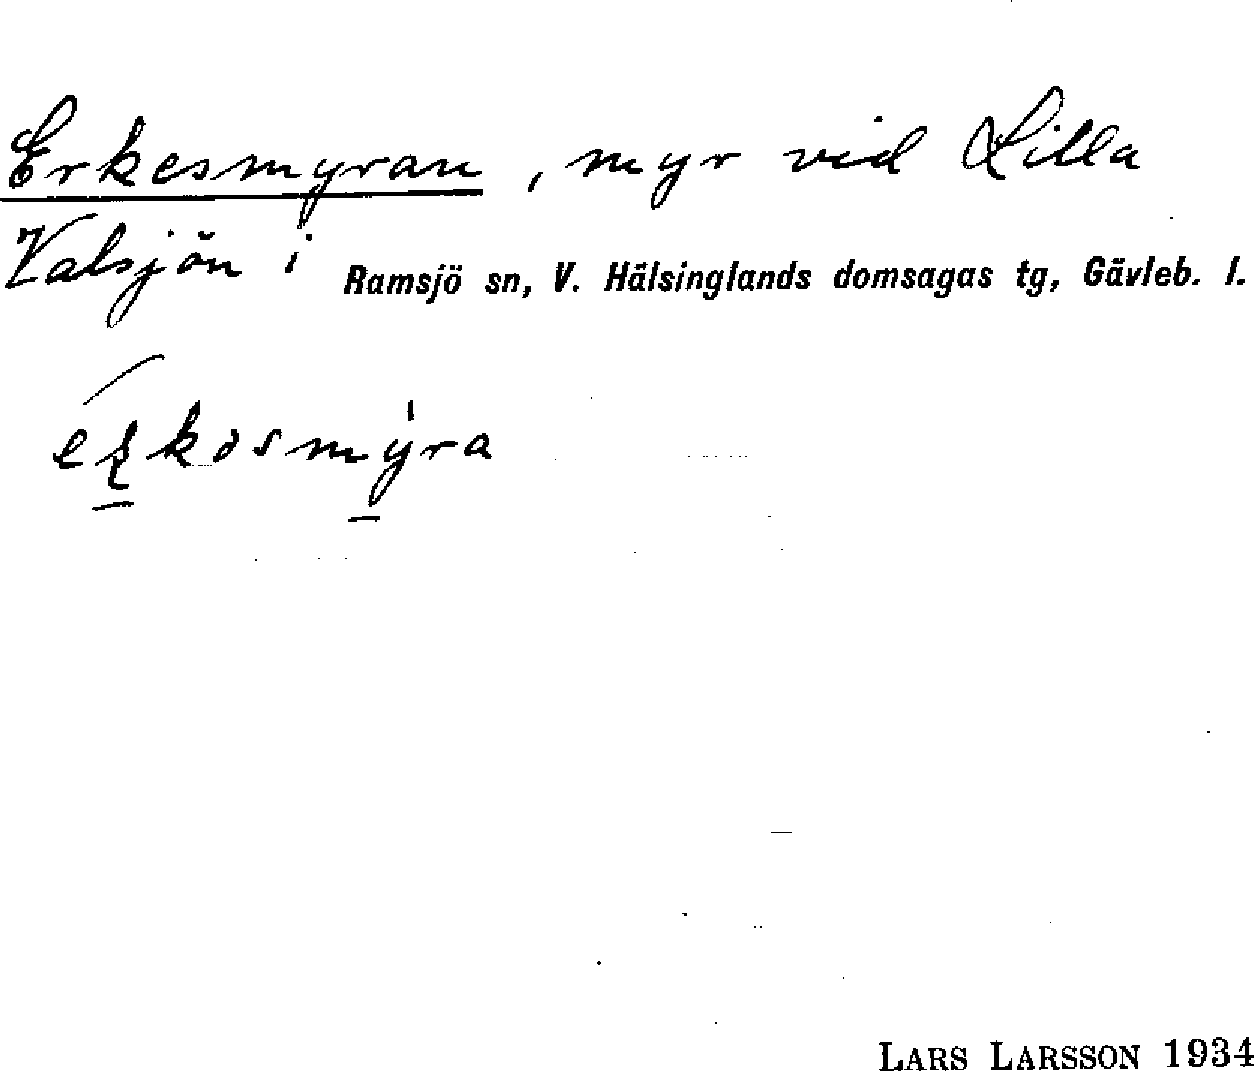 Erkesmyran, myr vid Lilla
Valsjön i Ramsjö sn, V. Hälsinglands domsagas tg, Gävleb. l.
LARS LARSSON 1934